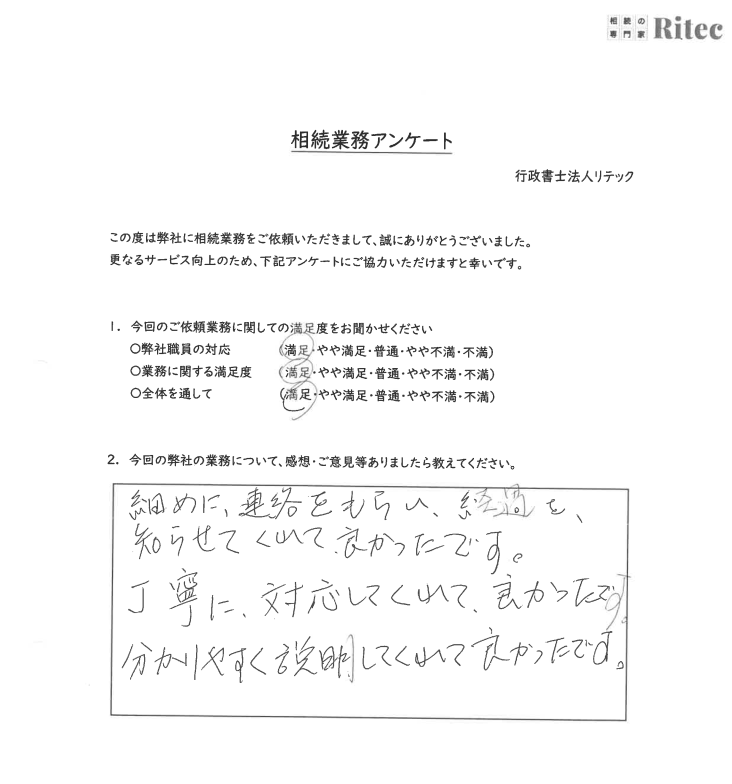 相続の
専門家
Ritec
相続業務アンケート
行政書士法人リテック
この度は弊社に相続業務をご依頼いただきまして、誠にありがとうございました。
更なるサービス向上のため、下記アンケートにご協力いただけますと幸いです。
1. 今回のご依頼業務に関しての満足度をお聞かせください
○弊社職員の対応 (満足・やや満足・普通・やや不満・不満)
○業務に関する満足度 (満足・やや満足・普通・やや不満・不満)
○全体を通して (満足・やや満足・普通・やや不満・不満)
2. 今回の弊社の業務について、感想・ご意見等ありましたら教えてください。
細めに、連絡をもらい、経過を、
知らせてくれて良かったです。
丁寧に、対応してくれて、良かったです。
分かりやすく説明してくれて良かったです。